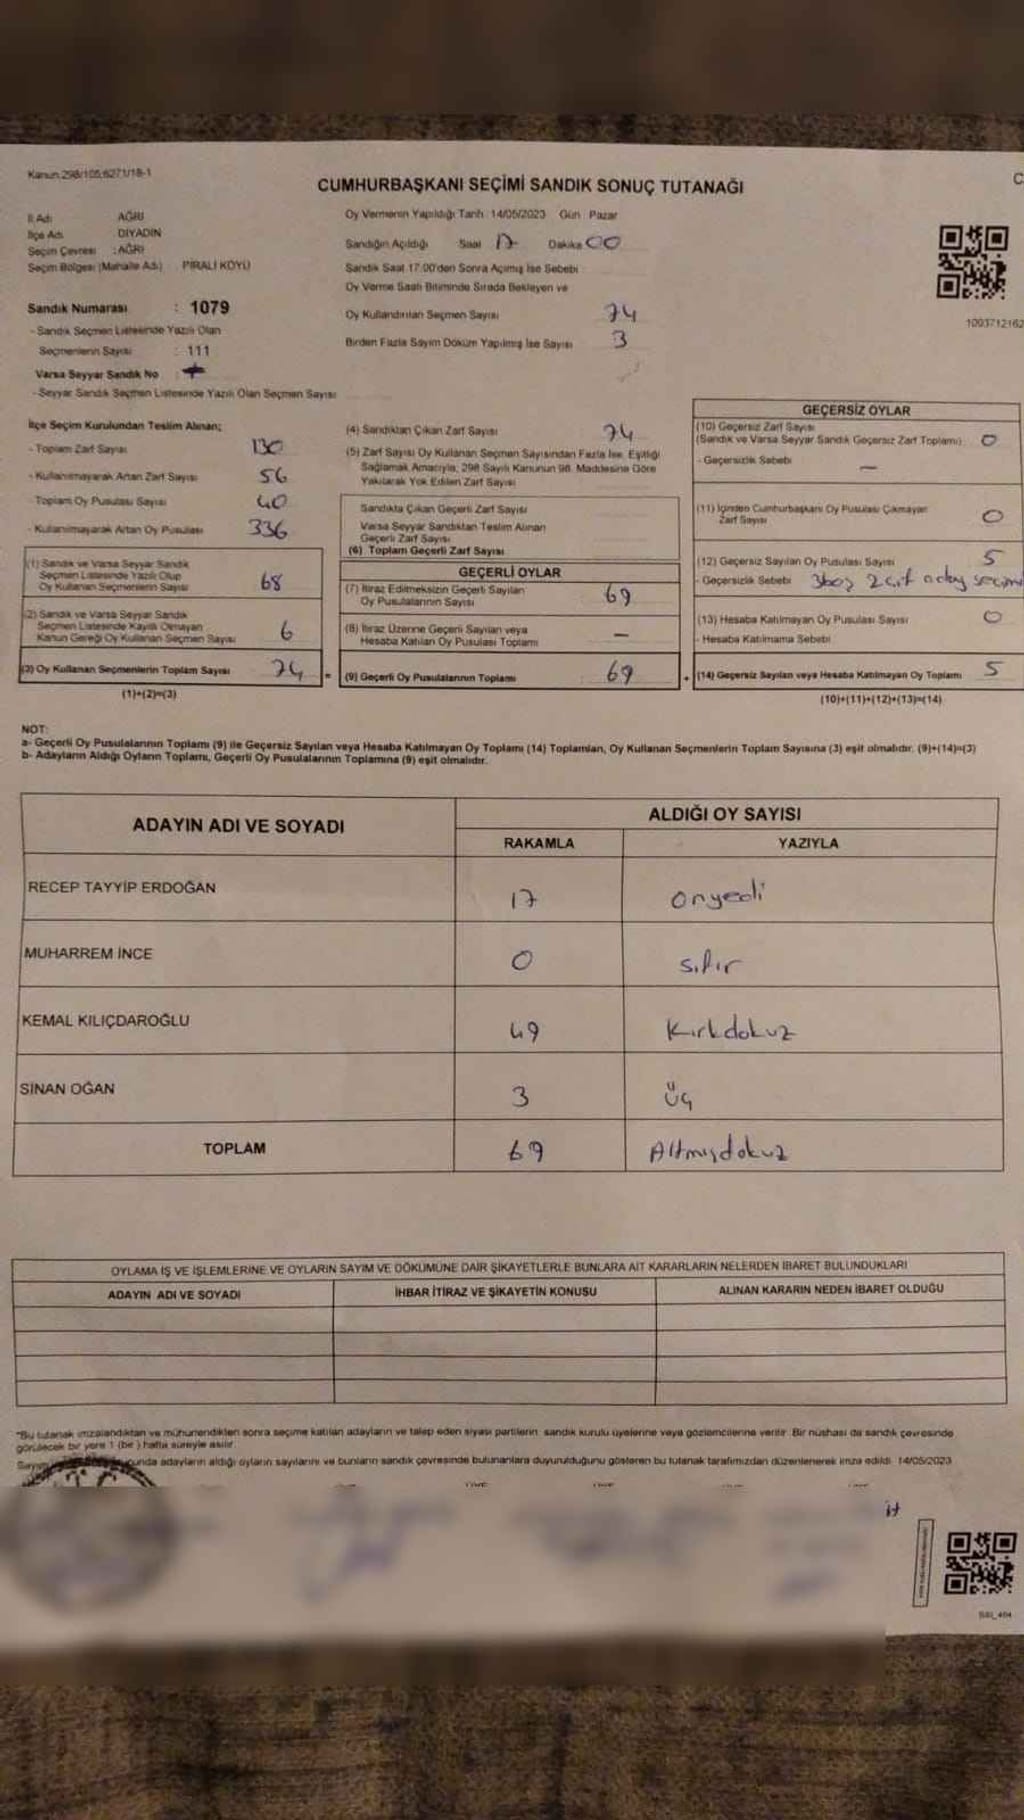 Kanun:298/105;6271/18-1
CUMHURBAŞKANI SEÇİMİ SANDIK SONUÇ TUTANAĞI
C
İl Adı AĞRI
İlçe Adı DİYADİN
Seçim Çevresi : AĞRI
Seçim Bölgesi (Mahalle Adı) PİRALİ KÖYÜ
Oy Vermenin Yapıldığı Tarih 14/05/2023 Gün Pazar
Sandığın Açıldığı Saat 17 Dakika 00
Sandık Saat 17.00'den Sonra Açılmış İse Sebebi
Oy Verme Saati Bitiminde Sırada Bekleyen ve
Oy Kullandırılan Seçmen Sayısı 74
Birden Fazla Sayım Döküm Yapılmış İse Sayısı 3
1003712162
Sandık Numarası : 1079
- Sandık Seçmen Listesinde Yazılı Olan
Seçmenlerin Sayısı : 111
Varsa Seyyar Sandık No :
- Seyyar Sandık Seçmen Listesinde Yazılı Olan Seçmen Sayısı
İlçe Seçim Kurulundan Teslim Alınan;
- Toplam Zarf Sayısı 130
- Kullanılmayarak Artan Zarf Sayısı 56
- Toplam Oy Pusulası Sayısı 40
- Kullanılmayarak Artan Oy Pusulası 336
(1) Sandık ve Varsa Seyyar Sandık
Seçmen Listesinde Yazılı Olup
Oy Kullanan Seçmenlerin Sayısı 68
(2) Sandık ve Varsa Seyyar Sandık
Seçmen Listesinde Kayıtlı Olmayan
Kanun Gereği Oy Kullanan Seçmen Sayısı 6
(3) Oy Kullanan Seçmenlerin Toplam Sayısı 74 =
(1)+(2)=(3)
(4) Sandıktan Çıkan Zarf Sayısı 74
(5) Zarf Sayısı Oy Kullanan Seçmen Sayısından Fazla İse, Eşitliği
Sağlamak Amacıyla, 298 Sayılı Kanunun 98. Maddesine Göre
Yakılarak Yok Edilen Zarf Sayısı
Sandıkta Çıkan Geçerli Zarf Sayısı
Varsa Seyyar Sandıktan Teslim Alınan
Geçerli Zarf Sayısı
(6) Toplam Geçerli Zarf Sayısı
GEÇERLİ OYLAR
(7) İtiraz Edilmeksizin Geçerli Sayılan
Oy Pusulalarının Sayısı 69
(8) İtiraz Üzerine Geçerli Sayılan veya
Hesaba Katılan Oy Pusulası Toplamı —
(9) Geçerli Oy Pusulalarının Toplamı 69 +
GEÇERSİZ OYLAR
(10) Geçersiz Zarf Sayısı
(Sandık ve Varsa Seyyar Sandık Geçersiz Zarf Toplamı) 0
- Geçersizlik Sebebi —
(11) İçinden Cumhurbaşkanı Oy Pusulası Çıkmayan
Zarf Sayısı 0
(12) Geçersiz Sayılan Oy Pusulası Sayısı 5
- Geçersizlik Sebebi 3boş 2çift aday seçimi
(13) Hesaba Katılmayan Oy Pusulası Sayısı 0
- Hesaba Katılmama Sebebi
(14) Geçersiz Sayılan veya Hesaba Katılmayan Oy Toplamı 5
(10)+(11)+(12)+(13)=(14)
NOT:
a- Geçerli Oy Pusulalarının Toplamı (9) ile Geçersiz Sayılan veya Hesaba Katılmayan Oy Toplamı (14) Toplamları, Oy Kullanan Seçmenlerin Toplam Sayısına (3) eşit olmalıdır. (9)+(14)=(3)
b- Adayların Aldığı Oyların Toplamı, Geçerli Oy Pusulalarının Toplamına (9) eşit olmalıdır.
ADAYIN ADI VE SOYADI
ALDIĞI OY SAYISI
RAKAMLA YAZIYLA
RECEP TAYYİP ERDOĞAN 17 onyedi
MUHARREM İNCE 0 sıfır
KEMAL KILIÇDAROĞLU 49 Kırkdokuz
SİNAN OĞAN 3 üç
TOPLAM 69 Altmışdokuz
OYLAMA İŞ VE İŞLEMLERİNE VE OYLARIN SAYIM VE DÖKÜMÜNE DAİR ŞİKAYETLERLE BUNLARA AİT KARARLARIN NELERDEN İBARET BULUNDUKLARI
ADAYIN ADI VE SOYADI İHBAR İTİRAZ VE ŞİKAYETİN KONUSU ALINAN KARARIN NEDEN İBARET OLDUĞU
*Bu tutanak imzalandıktan ve mühürlendikten sonra seçime katılan adayların ve talep eden siyasi partilerin sandık kurulu üyelerine veya gözlemcilerine verilir. Bir nüshası da sandık çevresinde
görülecek bir yere 1 (bir) hafta süreyle asılır.
adayların aldığı oyların sayılarını ve bunların sandık çevresinde bulunanlara duyurulduğunu gösteren bu tutanak tarafımızdan düzenlenerek imza edildi. 14/05/2023